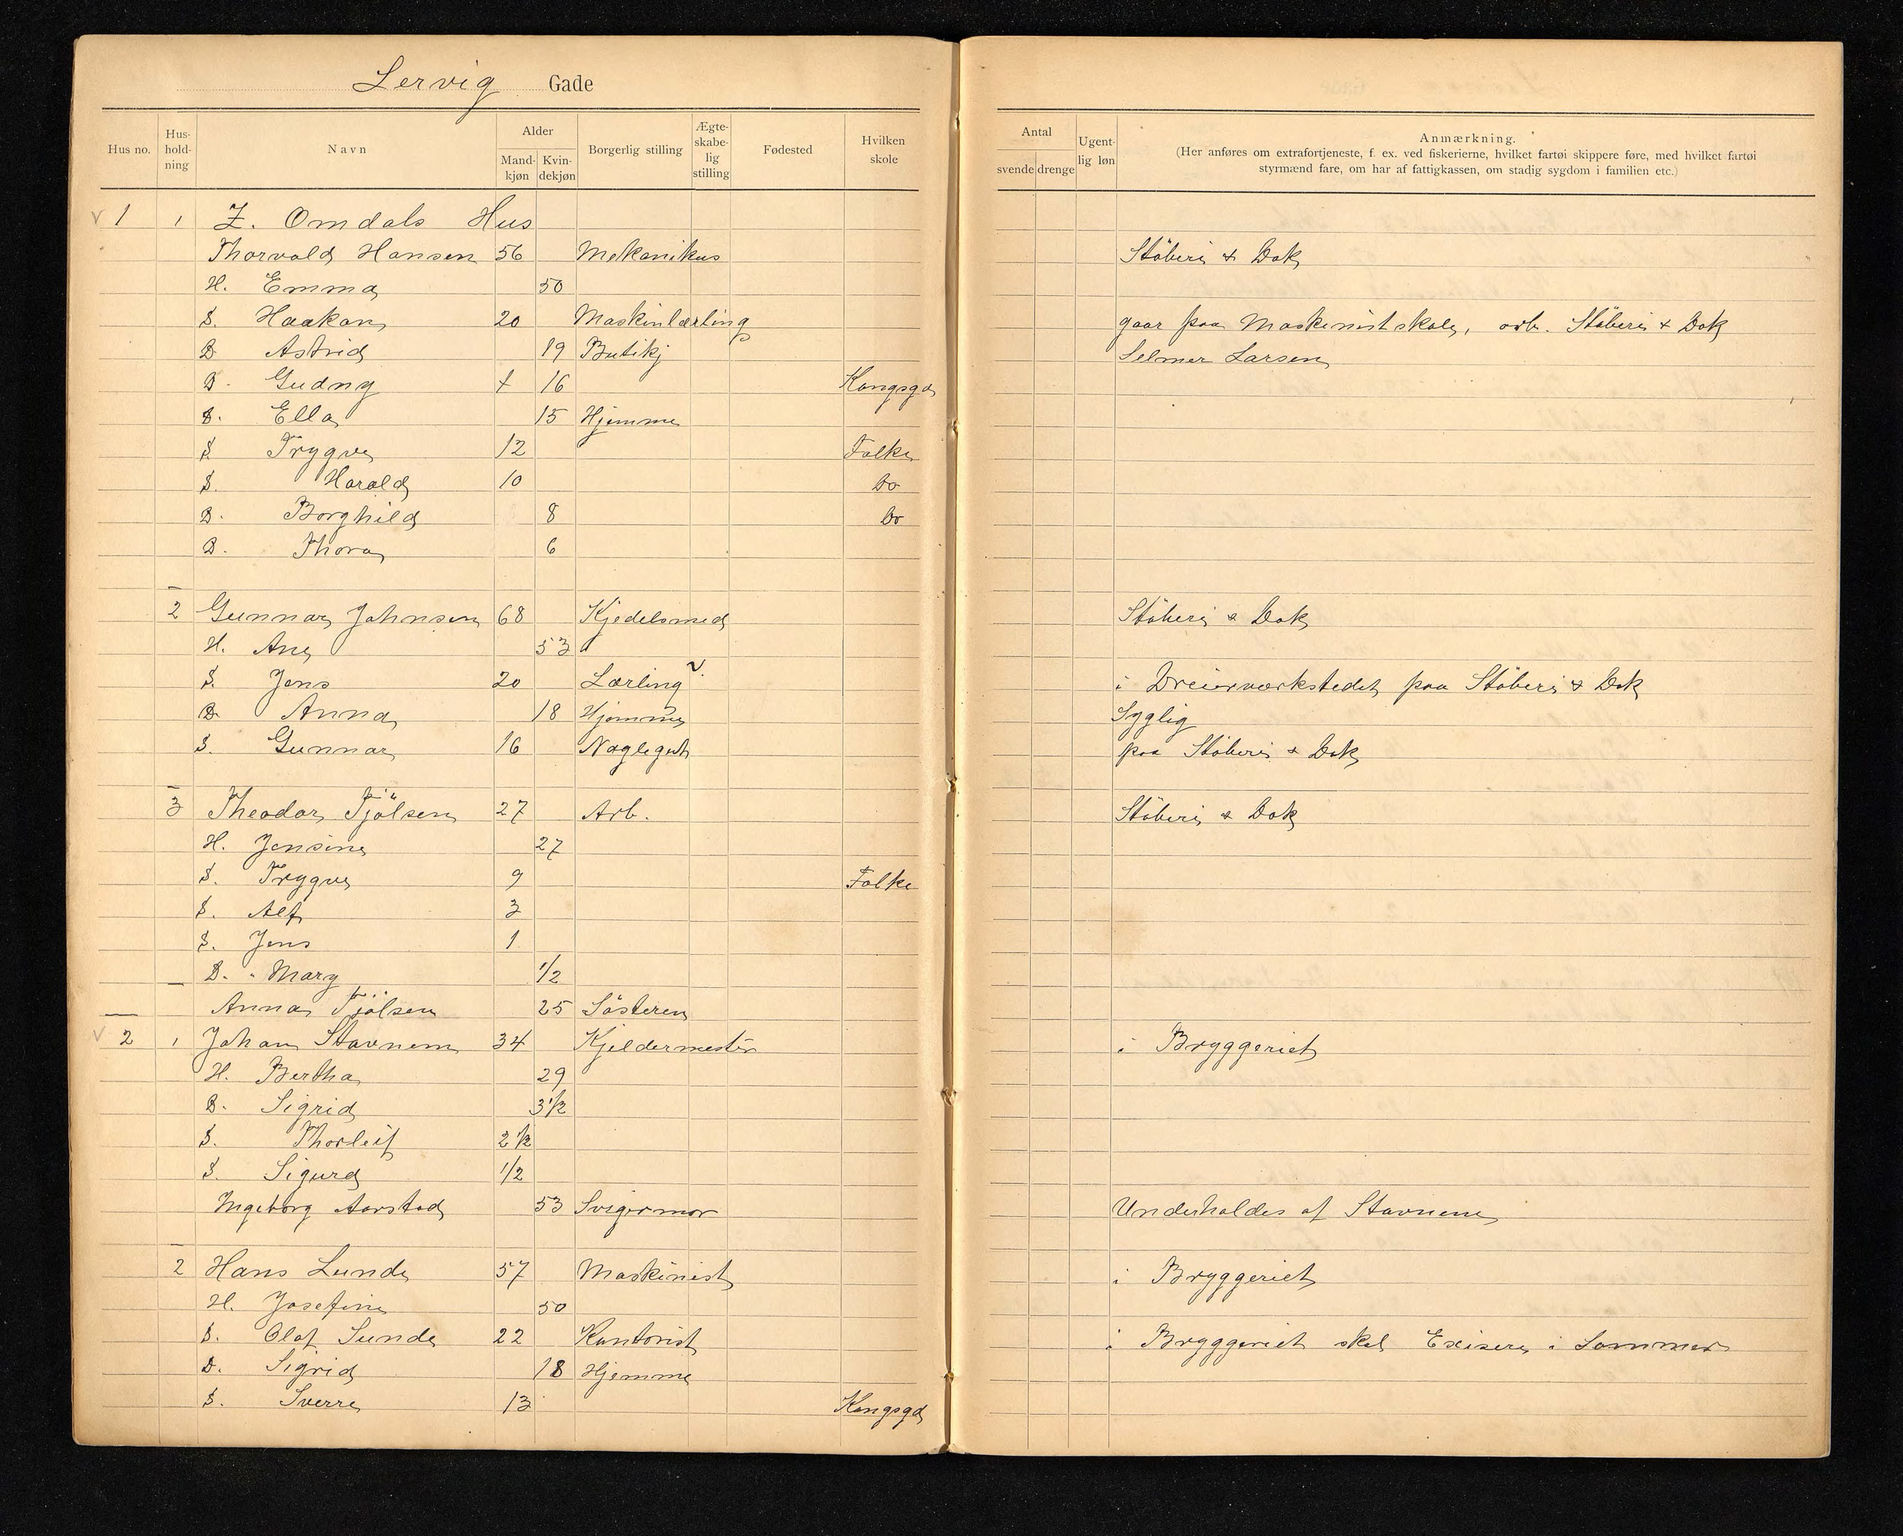 Lervig Gade
Hus no. Hus-holdning Navn Alder Mandkjøn Kvindekjøn Borgerlig stilling Ægte-skabe-lig stilling Fødested Hvilken skole Antal svende drenge Ugentlig løn Anmærkning.
(Her anføres om extrafortjeneste, f. ex. ved fiskerierne, hvilket fartøi skippere føre, med hvilket fartøi
styrmænd fare, om har af fattigkassen, om stadig sygdom i familien etc.)
1 1 Z. Omdals Hus
Thorvald Hansen 56 Mekanikus Støberi & Dok
H. Emma 50
S. Haakon 20 Maskinlærling gaar paa Maskinistskole, arb. Støberi & Dok
D Astrid 19 Butikj Selmer Larsen
D. Gudny 16 Kongsgd
D. Ella 15 Hjemme
S Trygve 12 Folke
S. Harald 10 Do
D. Borghild 8 Do
D. Thora 6
2 Gunnar Johnsen 68 Kjedelsmed Støberi & Dok
H. Ane 53
S. Jens 20 Lærling i Dreierværkstedet paa Støberi & Dok
D Anna 18 Hjemme Syglig
S. Gunnar 16 Naglegut paa Støberi & Dok
3 Theodor Tjölsen 27 Arb. Støberi & Dok
H. Jensine 27
S. Trygve 9 Folke
S. Alf 3
S. Jens 1
D. Mary 1/2
Anna Tjölsen 25 Søsteren
2 1 Johan Stavnem 34 Kjeldermester i Bryggeriet
H. Bertha 29
D. Sigrid 3 1/2
S. Thorleif 2 1/2
S Sigurd 1/2
Ingeborg Aarstad 53 Svigermor Underholdes af Stavnem
2 Hans Lunde 57 Maskinist i Bryggeriet
H. Josefine 50
S. Olaf Lunde 22 Kontorist i Bryggeriet skal Exisere i Sommer
D. Sigrid 18 Hjemme
S. Sverre 13 Kongsgd